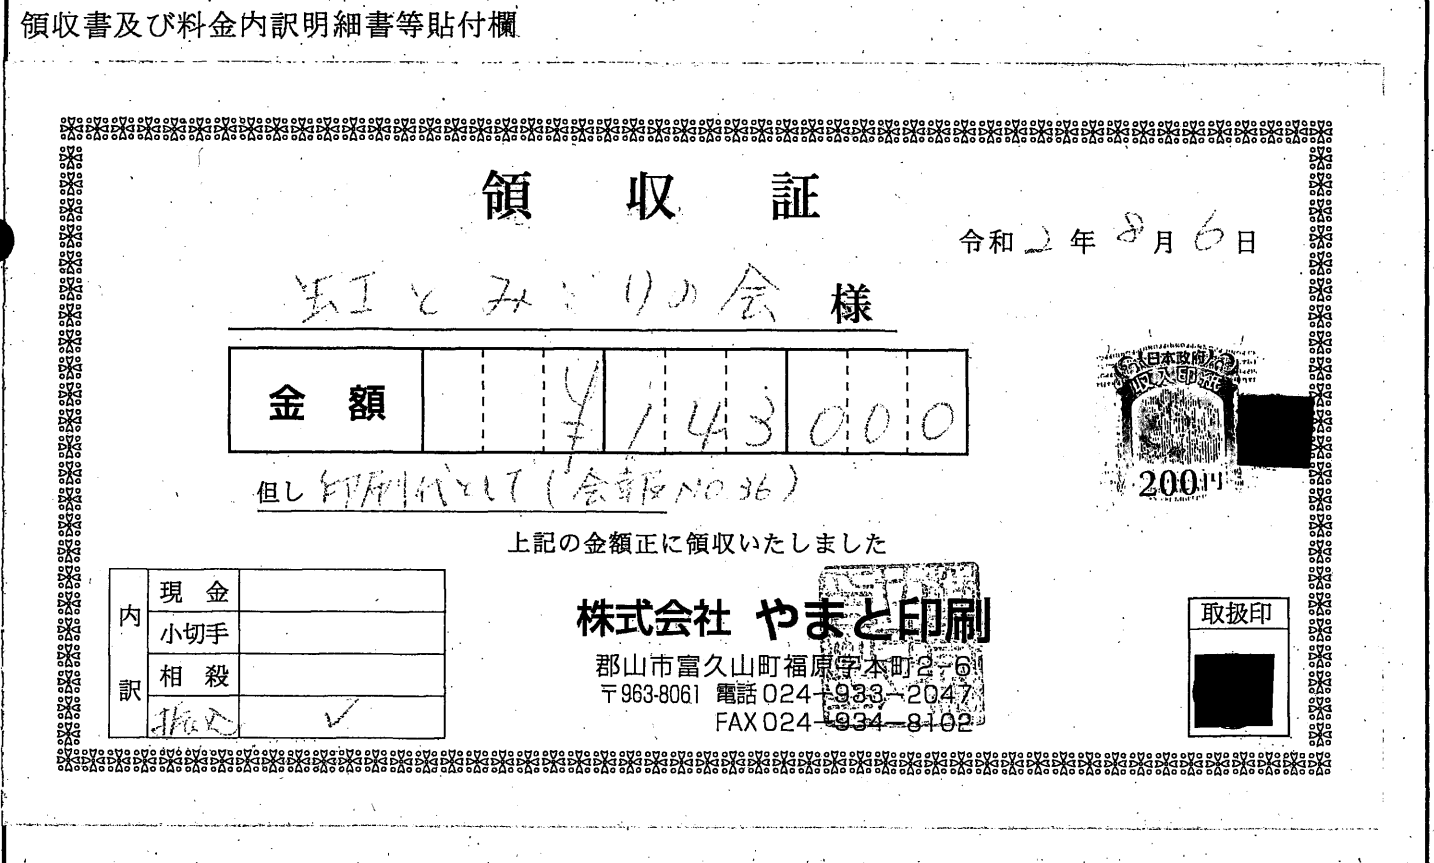 領収書及び料金内訳明細書等貼付欄
領収証
令和2年8月6日
虹とみどりの会 様
金額 ¥143000
但し 印刷代として(会報NO36)
日本政府
収入印紙
200円
上記の金額正に領収いたしました
内訳
現金
小切手
相殺
振込 ✓
株式会社 やまと印刷
郡山市富久山町福原字本町2-6
〒963-8061 電話024-933-2047
FAX024-934-8102
取扱印